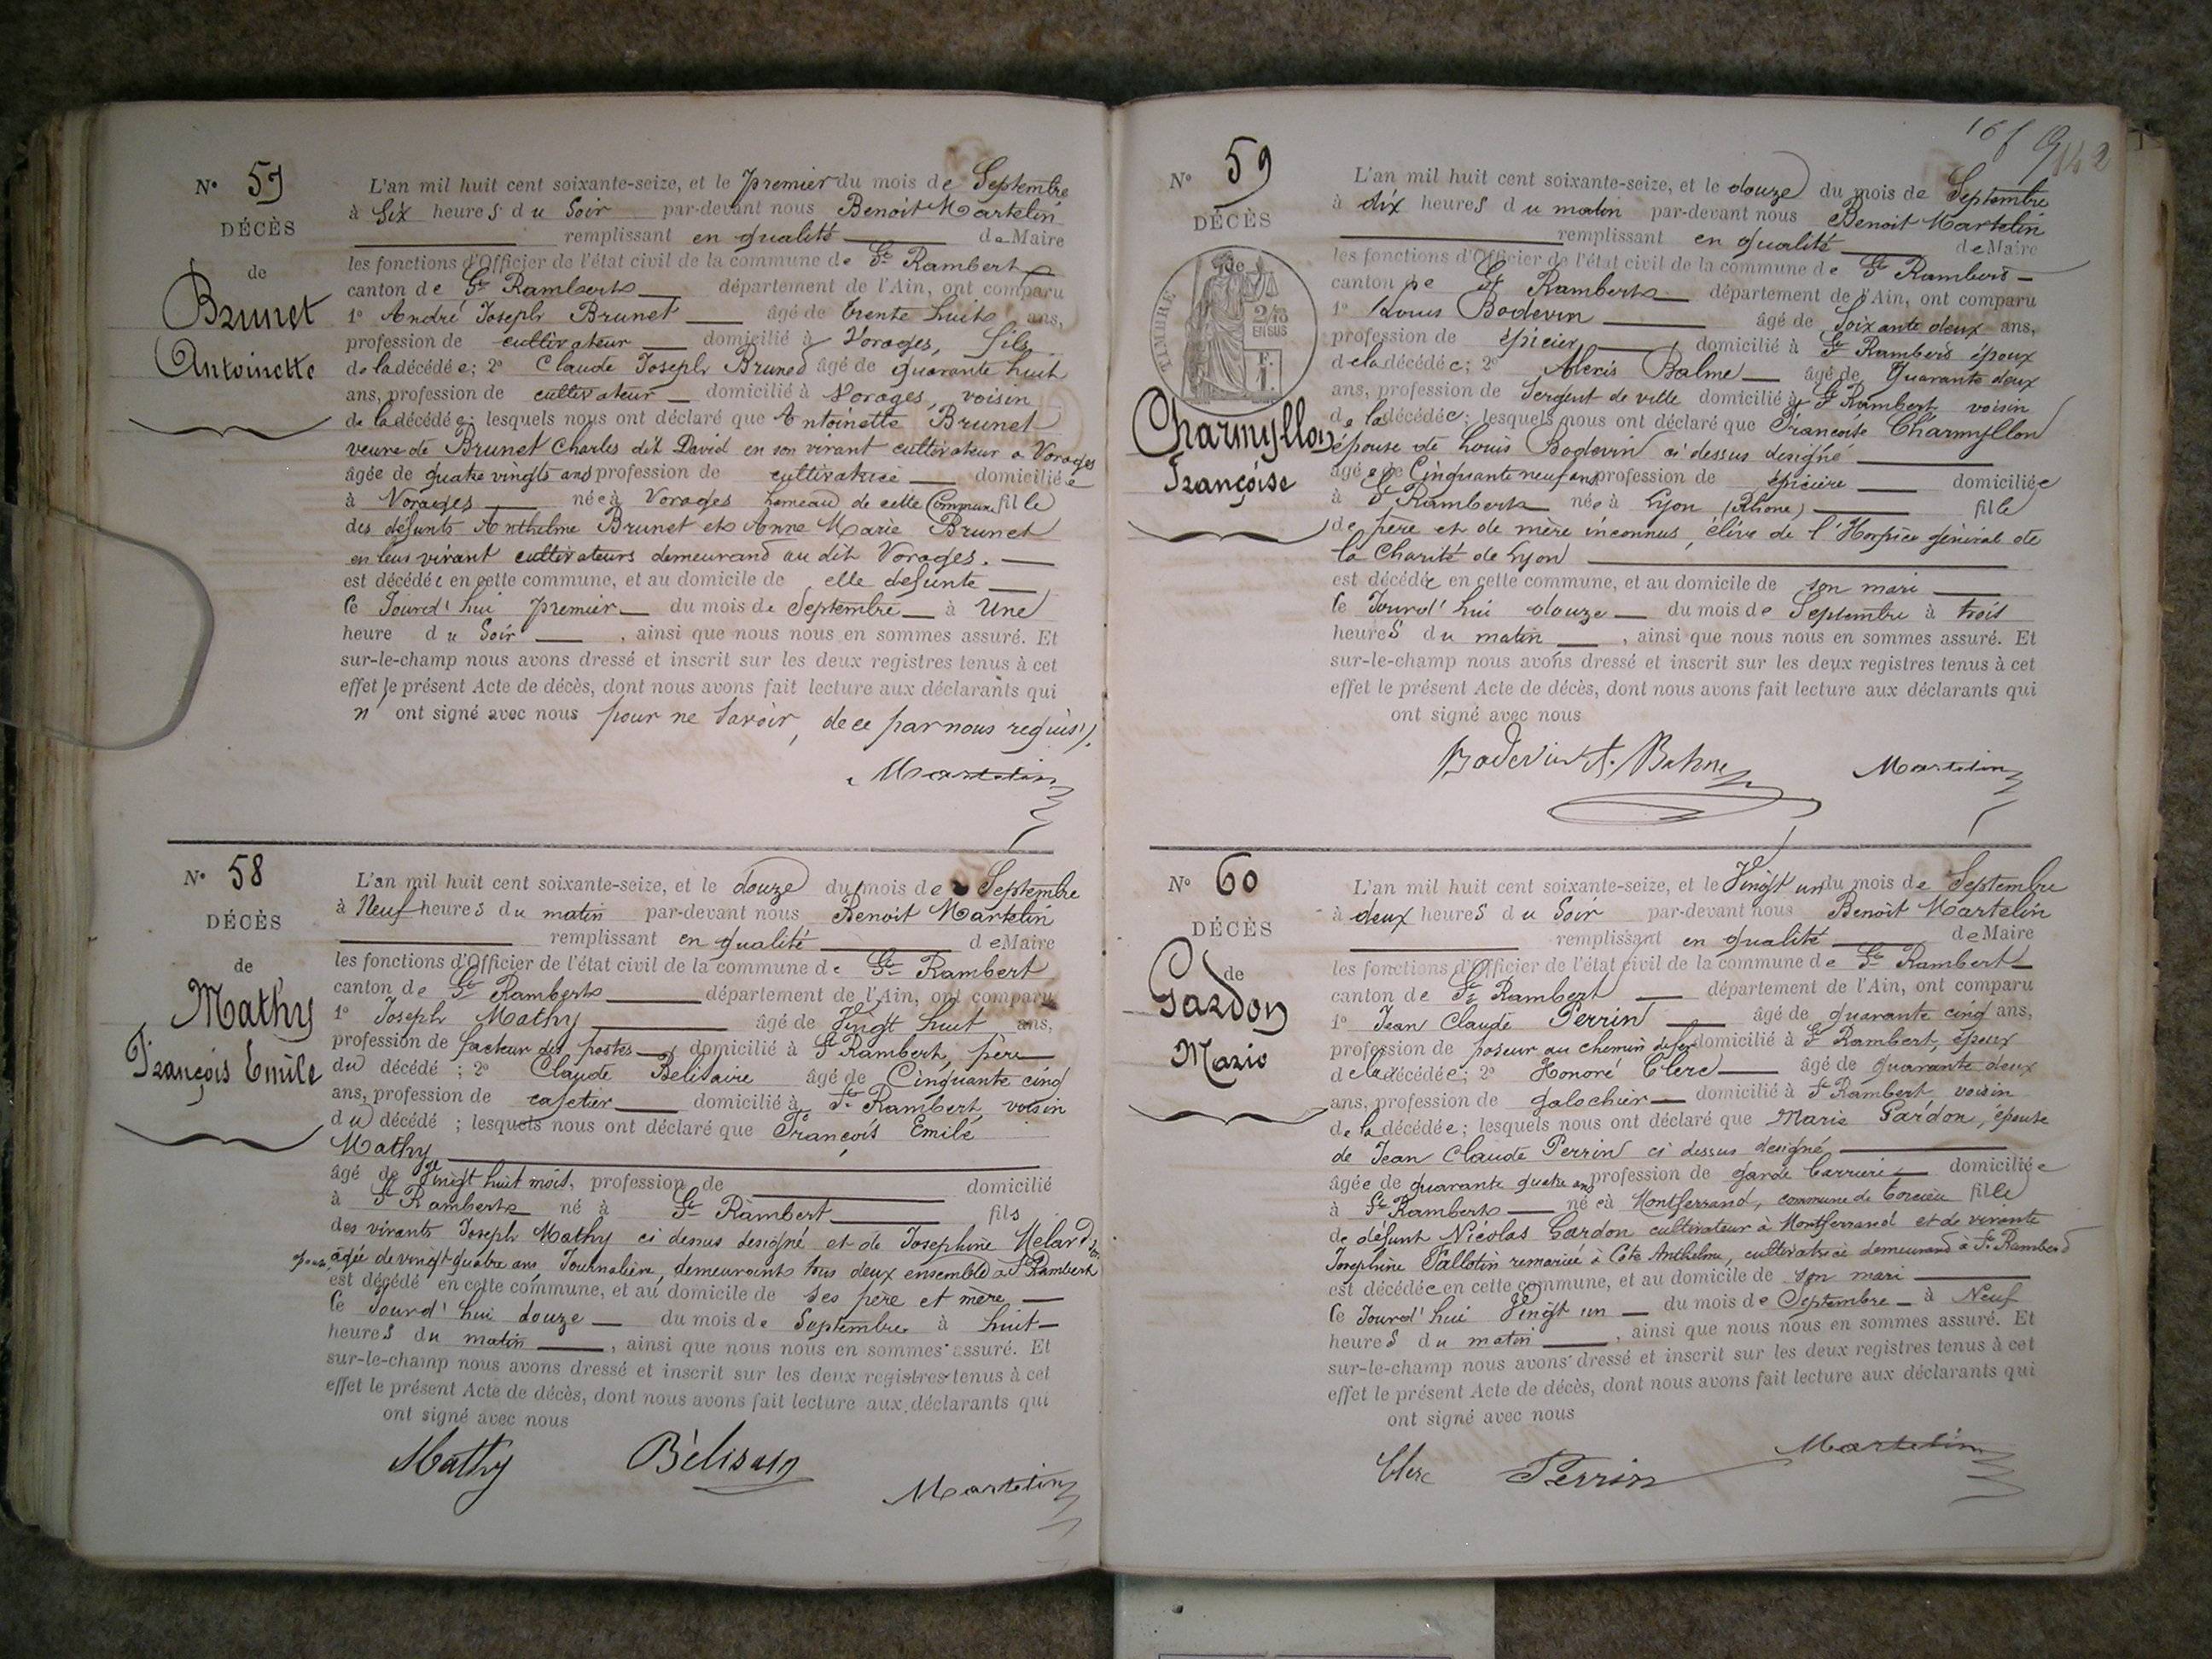 N° 57
DÉCÈS
de
Brunet
Antoinette
L'an mil huit cent soixante-seize, et le premier du mois de Septembre
à Six heures du Soir par-devant nous Benoit Martelin
remplissant en qualité de Maire
les fonctions d'Officier de l'état civil de la commune de St Rambert
canton de St Rambert département de l'Ain, ont comparu
1° André Joseph Brunet âgé de trente huit ans,
profession de cultivateur domicilié à Vorages, fils
de la décédée; 2° Claude Joseph Brunet âgé de quarante huit
ans, profession de cultivateur domicilié à Vorages, voisin
de la décédée; lesquels nous ont déclaré que Antoinette Brunet
veuve de Brunet Charles dit David en son vivant cultivateur à Vorages
âgée de quatre vingts ans profession de cultivatrice domiciliée
à Vorages née à Vorages hameau de cette Commune fille
des défunts Anthelme Brunet et Anne Marie Brunet
en leur vivant cultivateurs demeurant au dit Vorages.
est décédée en cette commune, et au domicile de elle defunte
le Jourd'hui premier du mois de Septembre à Une
heure du Soir, ainsi que nous nous en sommes assuré. Et
sur-le-champ nous avons dressé et inscrit sur les deux registres tenus à cet
effet le présent Acte de décès, dont nous avons fait lecture aux déclarants qui
n'ont signé avec nous pour ne savoir, de ce par nous requis.
Martelin
N° 58
DÉCÈS
de
Mathy
François Emile
L'an mil huit cent soixante-seize, et le douze du mois de Septembre
à Neuf heures du matin par-devant nous Benoit Martelin
remplissant en qualité de Maire
les fonctions d'Officier de l'état civil de la commune de St Rambert
canton de St Rambert département de l'Ain, ont comparu
1° Joseph Mathy âgé de Vingt huit ans,
profession de facteur des postes domicilié à St Rambert, père
du décédé; 2° Claude Bélisaire âgé de Cinquante cinq
ans, profession de cafetier domicilié à St Rambert, voisin
du décédé; lesquels nous ont déclaré que François Emile
Mathy
âgé de Vingt huit mois, profession de domicilié
à St Rambert né à St Rambert fils
des vivants Joseph Mathy ci dessus designé et de Josephine Melard
âgée de vingt quatre ans, Journalière, demeurants tous deux ensemble à St Rambert
est décédé en cette commune, et au domicile de ses père et mère
le Jourd'hui douze du mois de Septembre à huit
heures du matin, ainsi que nous nous en sommes assuré. Et
sur-le-champ nous avons dressé et inscrit sur les deux registres tenus à cet
effet le présent Acte de décès, dont nous avons fait lecture aux déclarants qui
ont signé avec nous
Mathy Bélisair
Martelin
142
N° 59
DÉCÈS
de
TIMBRE
2/10
EN SUS
F.
1.
Charmyllon
Françoise
L'an mil huit cent soixante-seize, et le douze du mois de Septembre
à dix heures du matin par-devant nous Benoit Martelin
remplissant en qualité de Maire
les fonctions d'Officier de l'état civil de la commune de St Rambert
canton de St Rambert département de l'Ain, ont comparu
1° Louis Bodevin âgé de Soixante deux ans,
profession de épicier, domicilié à St Rambert époux
de la décédée; 2° Alexis Balme âgé de Quarante deux
ans, profession de Sergent de ville domicilié à St Rambert voisin
de la décédée; lesquels nous ont déclaré que Françoise Charmyllon
épouse de Louis Bodevin ci dessus designé
âgée de Cinquante neuf ans profession de épicière domiciliée
à St Rambert née à Lyon (Rhône) fille
de père et de mère inconnus, élève de l'Hospice général de
la Charité de Lyon
est décédée en cette commune, et au domicile de son mari
le Jourd'hui douze du mois de Septembre à trois
heures du matin, ainsi que nous nous en sommes assuré. Et
sur-le-champ nous avons dressé et inscrit sur les deux registres tenus à cet
effet le présent Acte de décès, dont nous avons fait lecture aux déclarants qui
ont signé avec nous
Bodevin A. Balme Martelin
N° 60
DÉCÈS
de
Gardon
Marie
L'an mil huit cent soixante-seize, et le Vingt un du mois de Septembre
à deux heures du Soir par-devant nous Benoit Martelin
remplissant en qualité de Maire
les fonctions d'Officier de l'état civil de la commune de St Rambert
canton de St Rambert département de l'Ain, ont comparu
1° Jean Claude Perrin âgé de quarante cinq ans,
profession de poseur au chemin de fer domicilié à St Rambert, époux
de la décédée; 2° Honoré Clerc âgé de quarante deux
ans, profession de galochier domicilié à St Rambert voisin
de la décédée; lesquels nous ont déclaré que Marie Gardon, épouse
de Jean Claude Perrin ci dessus designé
âgée de quarante quatre ans profession de garde barrière domiciliée
à St Rambert née à Montferrand, commune de Torcieu fille
de défunt Nicolas Gardon cultivateur à Montferrand et de vivante
Josephine Tallotin remariée à Côte Anthelme, cultivatrice demeurand à St Rambert
est décédée en cette commune, et au domicile de son mari
le Jourd'hui Vingt un du mois de Septembre à Neuf
heures du matin, ainsi que nous nous en sommes assuré. Et
sur-le-champ nous avons dressé et inscrit sur les deux registres tenus à cet
effet le présent Acte de décès, dont nous avons fait lecture aux déclarants qui
ont signé avec nous
Clerc Perrin Martelin